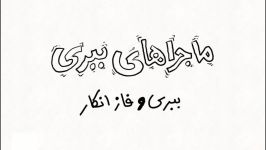 ماجراهای ببری
ببری و فاز انکار